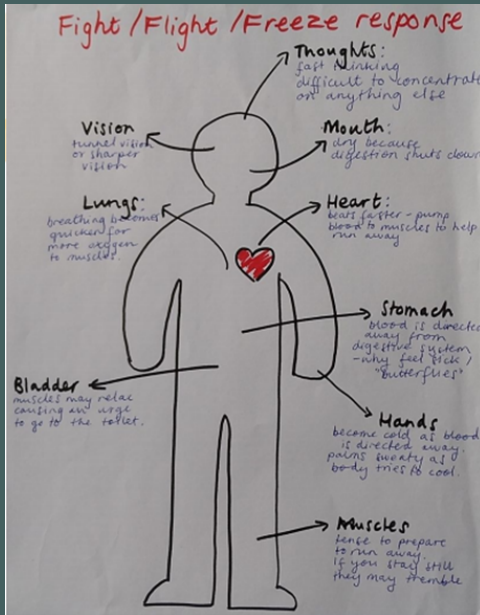 Fight/Flight/Freeze response
Thoughts:
fast thinking
difficult to concentrate
on anything else
Vision
tunnel vision
or sharper
vision
Mouth:
dry because
digestion shuts down
Lungs:
breathing becomes
quicker for
more oxygen
to muscles.
Heart:
beats faster - pump
blood to muscles to help
run away
Stomach
blood is directed
away from
digestive system
- why feel sick/
"butterflies"
Bladder
muscles may relax
causing an urge
to go to the toilet.
Hands
become cold as blood
is directed away.
palms sweaty as
body tries to cool.
Muscles
tense to prepare
to run away.
if you stay still
they may tremble